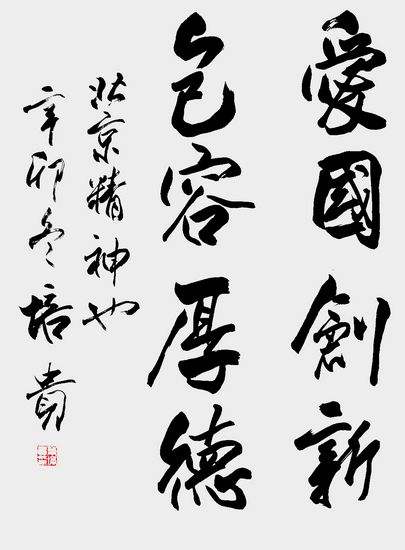 愛國創新
包容厚德
北京精神也
辛卯冬培貴